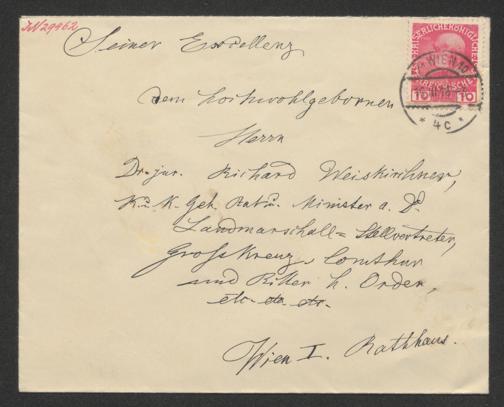 IN 29962
Seiner Exzellenz
dem hochwohlgebornen
Herrn
Dr. jur. Richard Weiskirchner,
K. u. K. Geh. Rat u. Minister a. D.
Landmarschall= Stellvertreter,
Grosskreuz, Comthur
und Ritter h. Orden,
etc. etc. etc.
Wien I. Rathhaus.
WIEN 10
4c
10 10